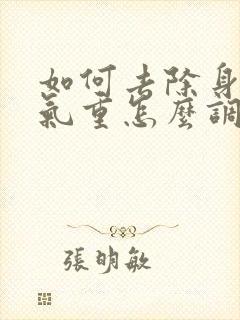 如何去除身
氣重怎麼調
張明敏